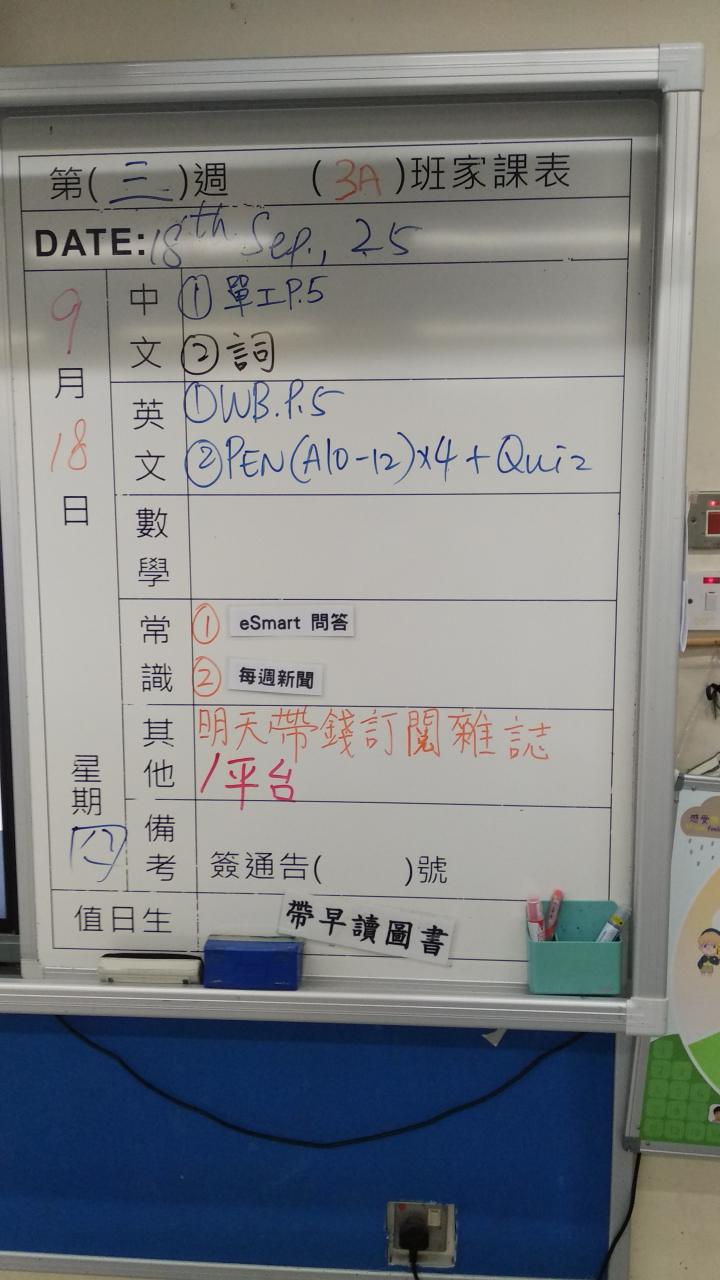 第(三)週 (3A)班家課表
DATE:18th Sep., 25
9月18日
星期四
中文
①單工P.5
②詞
英文
①WB.P.5
②PEN(A10-12)x4+Quiz
數學
常識
① eSmart 問答
② 每週新聞
其他
明天帶錢訂閱雜誌
/平台
備考
簽通告( )號
值日生
帶早讀圖書